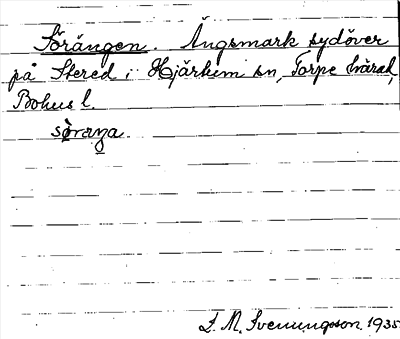 Sörängen. Ängsmark sydöver
på Stered i Hjärtum sn, Torpe härad,
Bohus l.
sö̀raŋa
S. M. Svenungsson 1935